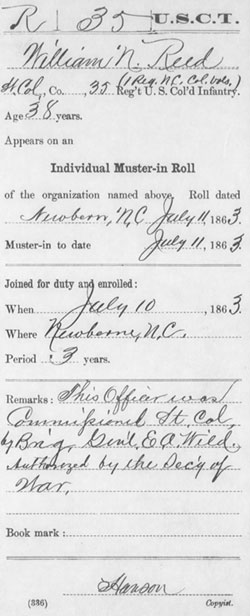 R 35 U.S.C.T.
William N. Reed
(1 Reg. N.C. Col. Vols.)
Lt Col, Co. , 35 Reg't U. S. Col'd Infantry.
Age 38 years.
Appears on an
Individual Muster-in Roll
of the organization named above. Roll dated
Newbern, N.C July 11, 1863.
Muster-in to date July 11, 1863.
Joined for duty and enrolled:
When July 10, 1863.
Where Newborne, N.C.
Period 3 years.
Remarks: This Officer was
Commissioned Lt. Col.
by Brig. Genl. E.A. Wild.
Authorized by the Sec'y of
War.
Book mark:
Hanson
(336) Copyist.